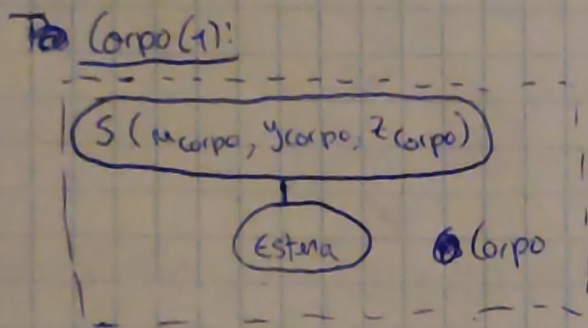 Corpo (1):
S (xcorpo, ycorpo, zcorpo)
Esfera
Corpo